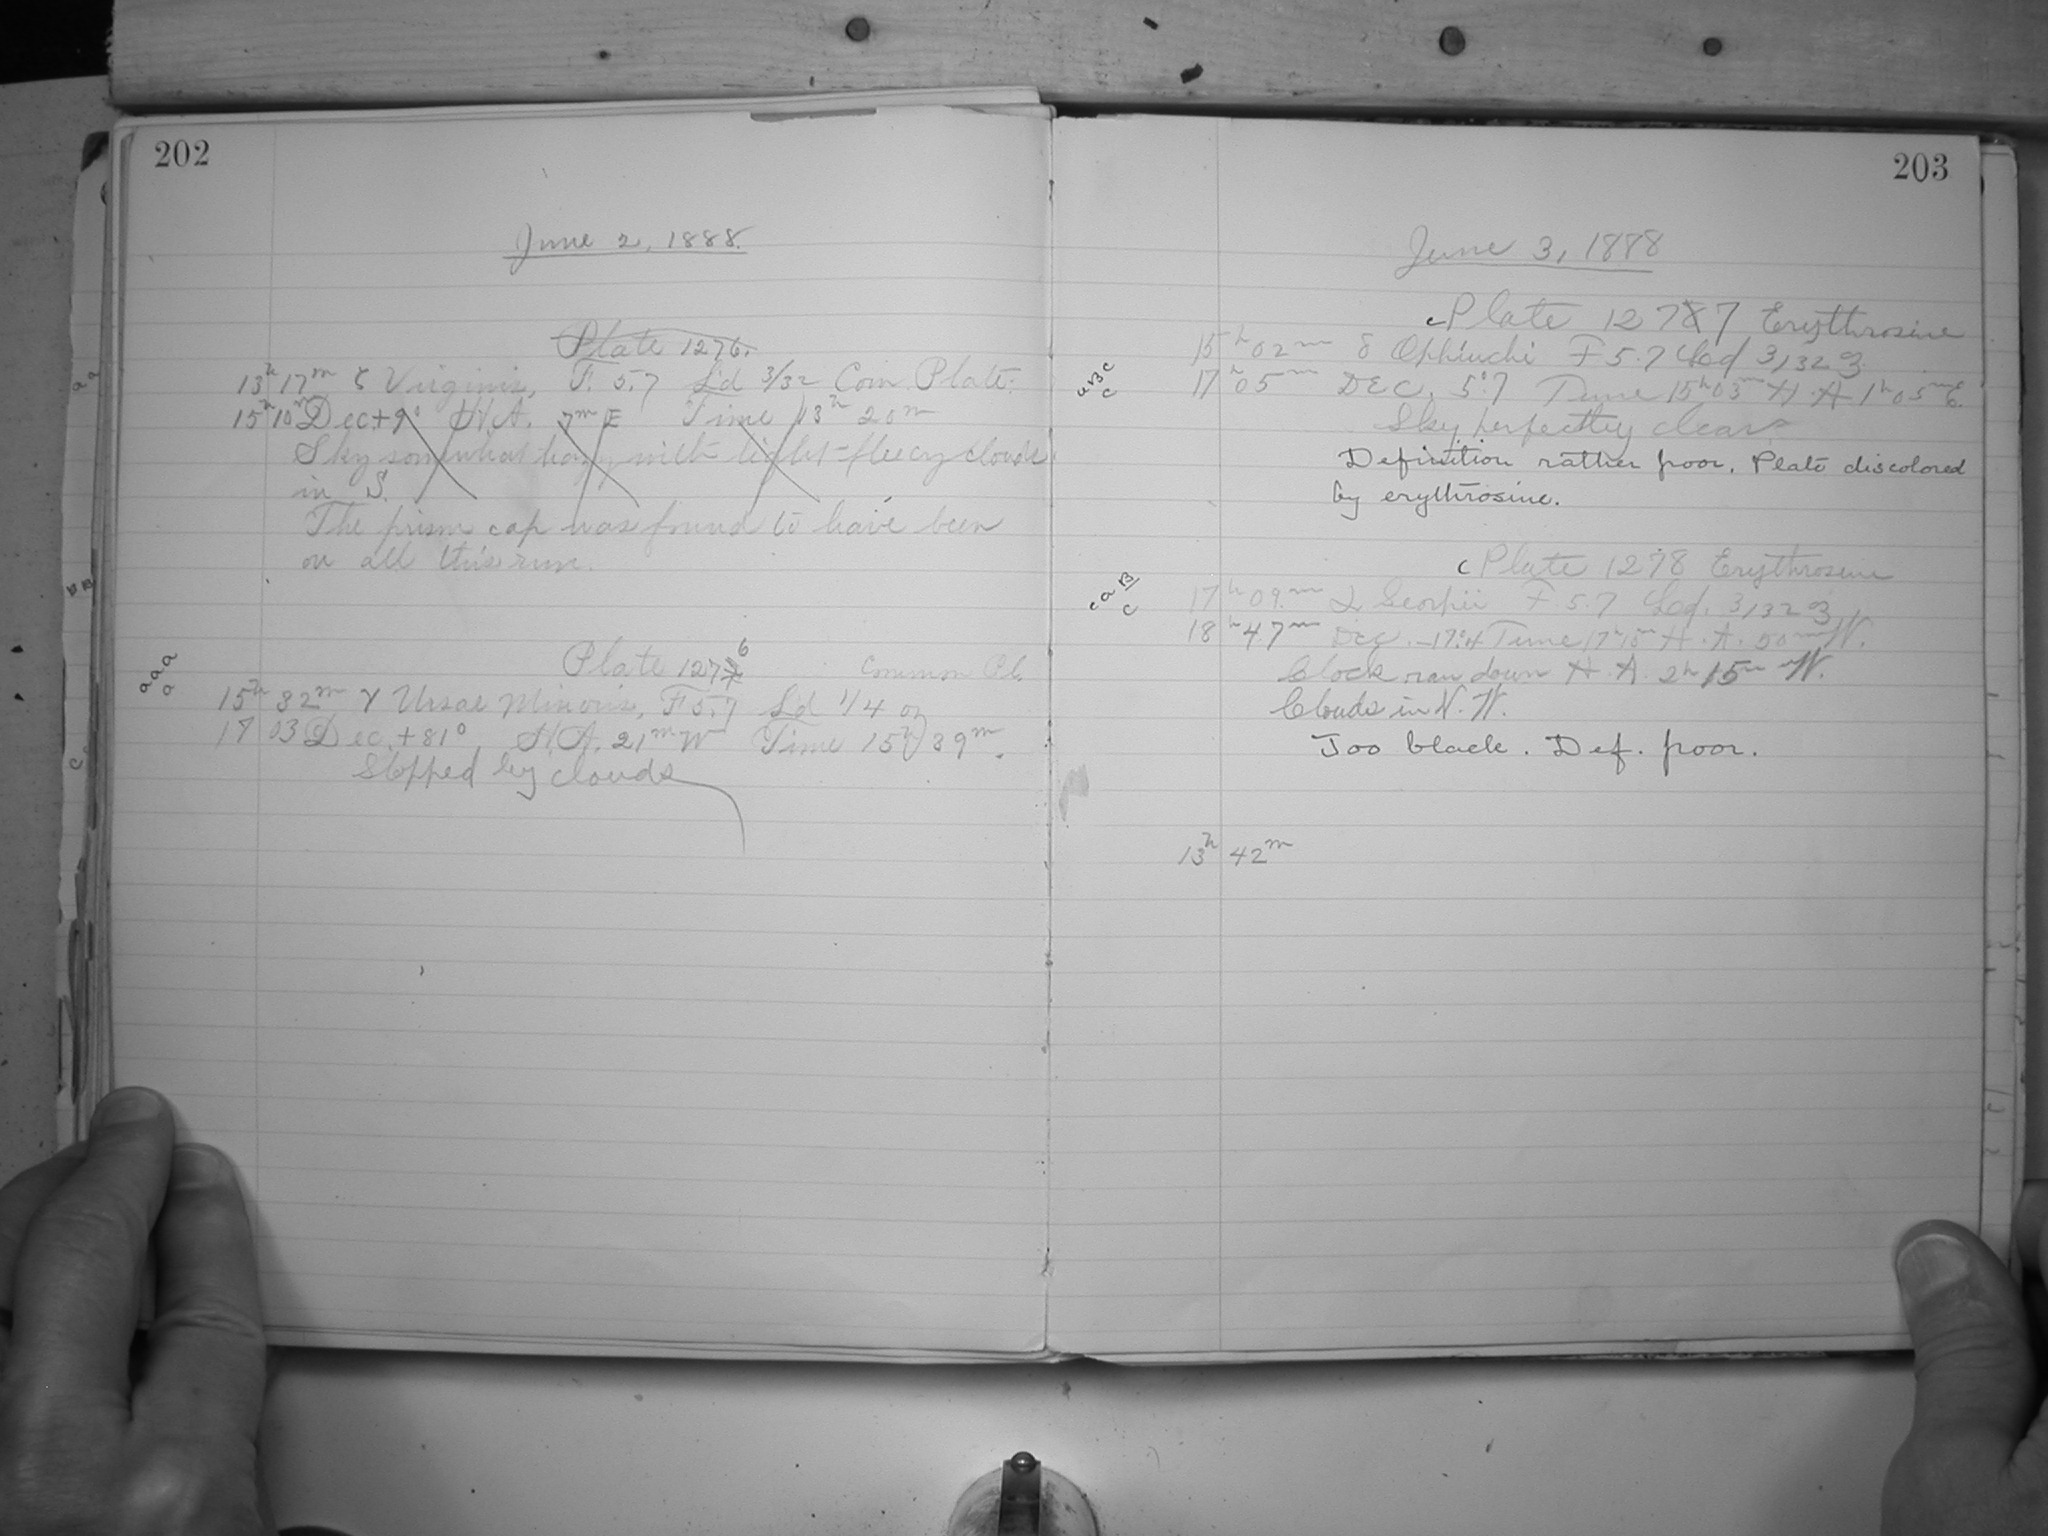 202
June 2, 1888.
Plate 1276.
13h 17m ζ Virginis, F. 5.7 L'd 3/32 Com Plate.
15h 10m Dec + 9° H.A. 7m E Time 13h 20m
Sky somewhat hazy with light fleecy clouds
in S.
The prism cap was found to have been
on all this run.
Plate 1276 Common Pl.
15h 32m γ Ursae Minoris, F 5.7 L'd 1/4 on
17 03 Dec. + 81° H.A. 21m W Time 15h 39m.
Stopped by clouds
aa
BB
aaa
a
c
203
June 3, 1888
c Plate 1277 Erythrosine
15h 02m δ Ophiuchi F 5.7 L'd 3/32
17h 05m DEC. 5°.7 Time 15h 03m H.A 1h 05m E.
Sky perfectly clear
Definition rather poor. Plate discolored
by erythrosine.
c Plate 1278 Erythrosine
17h 09m Scorpii F 5.7 L'd. 3/32
18h 47m Dec. -17°.4 Time 17h 15m H.A. 50m W.
Clock ran down H.A. 2h 15m W.
Clouds in N.W.
Too black. Def. poor.
13h 42m
aBc
c
caB
c